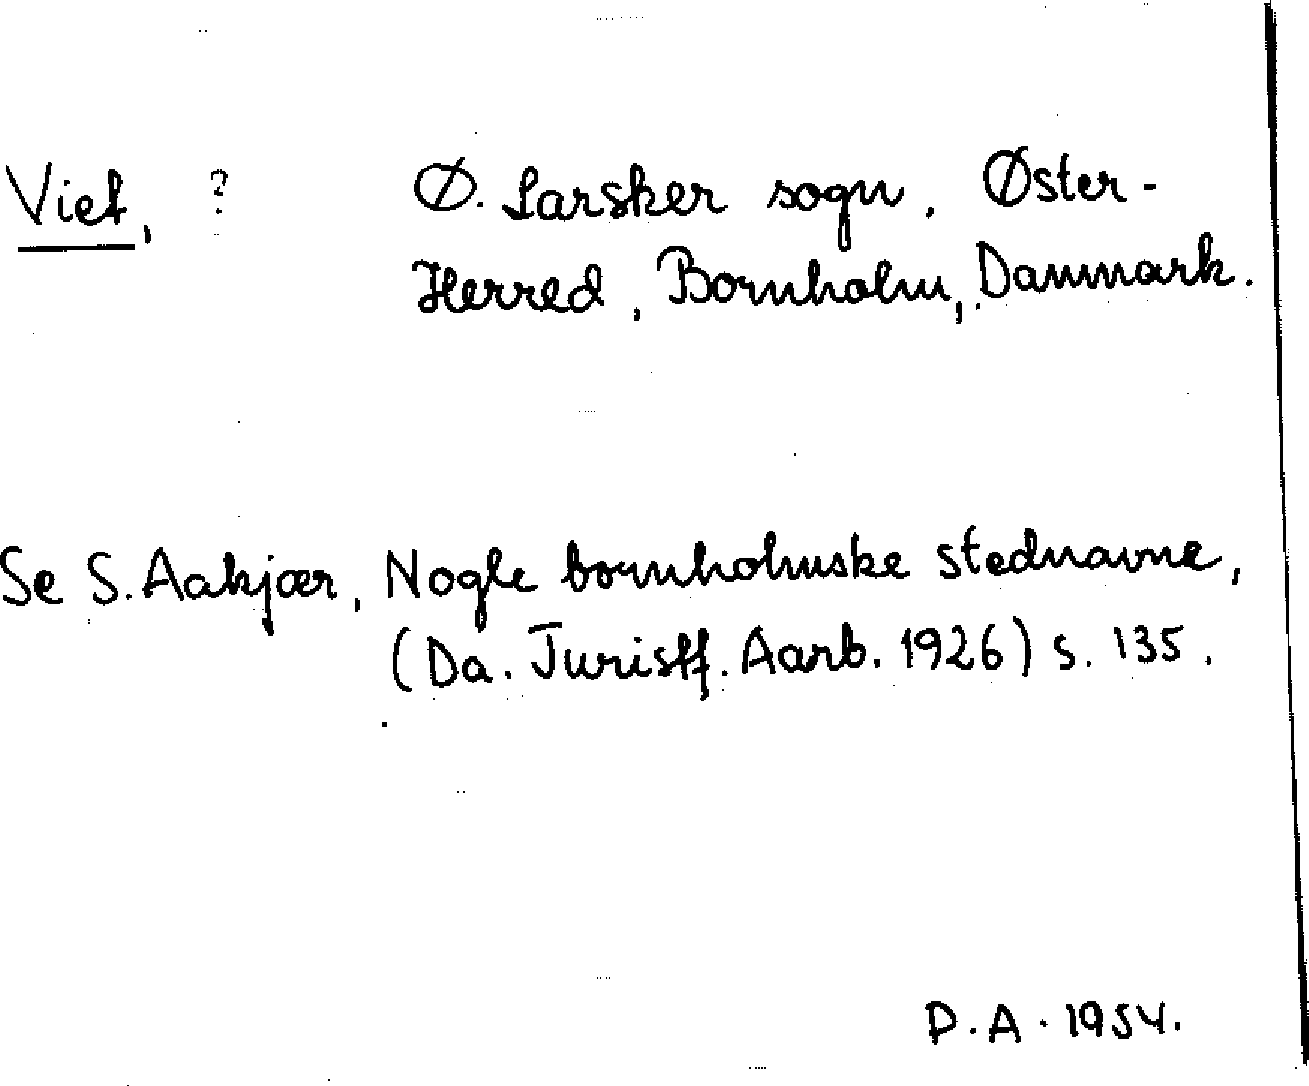 Viet, ? Ø. Larsker sogn, Øster-
Herred, Bornholm, Danmark.
Se S. Aakjær, Nogle bornholmske stednavne,
(Da. Juristf. Aarb. 1926) s. 135.
P.A. 1954.